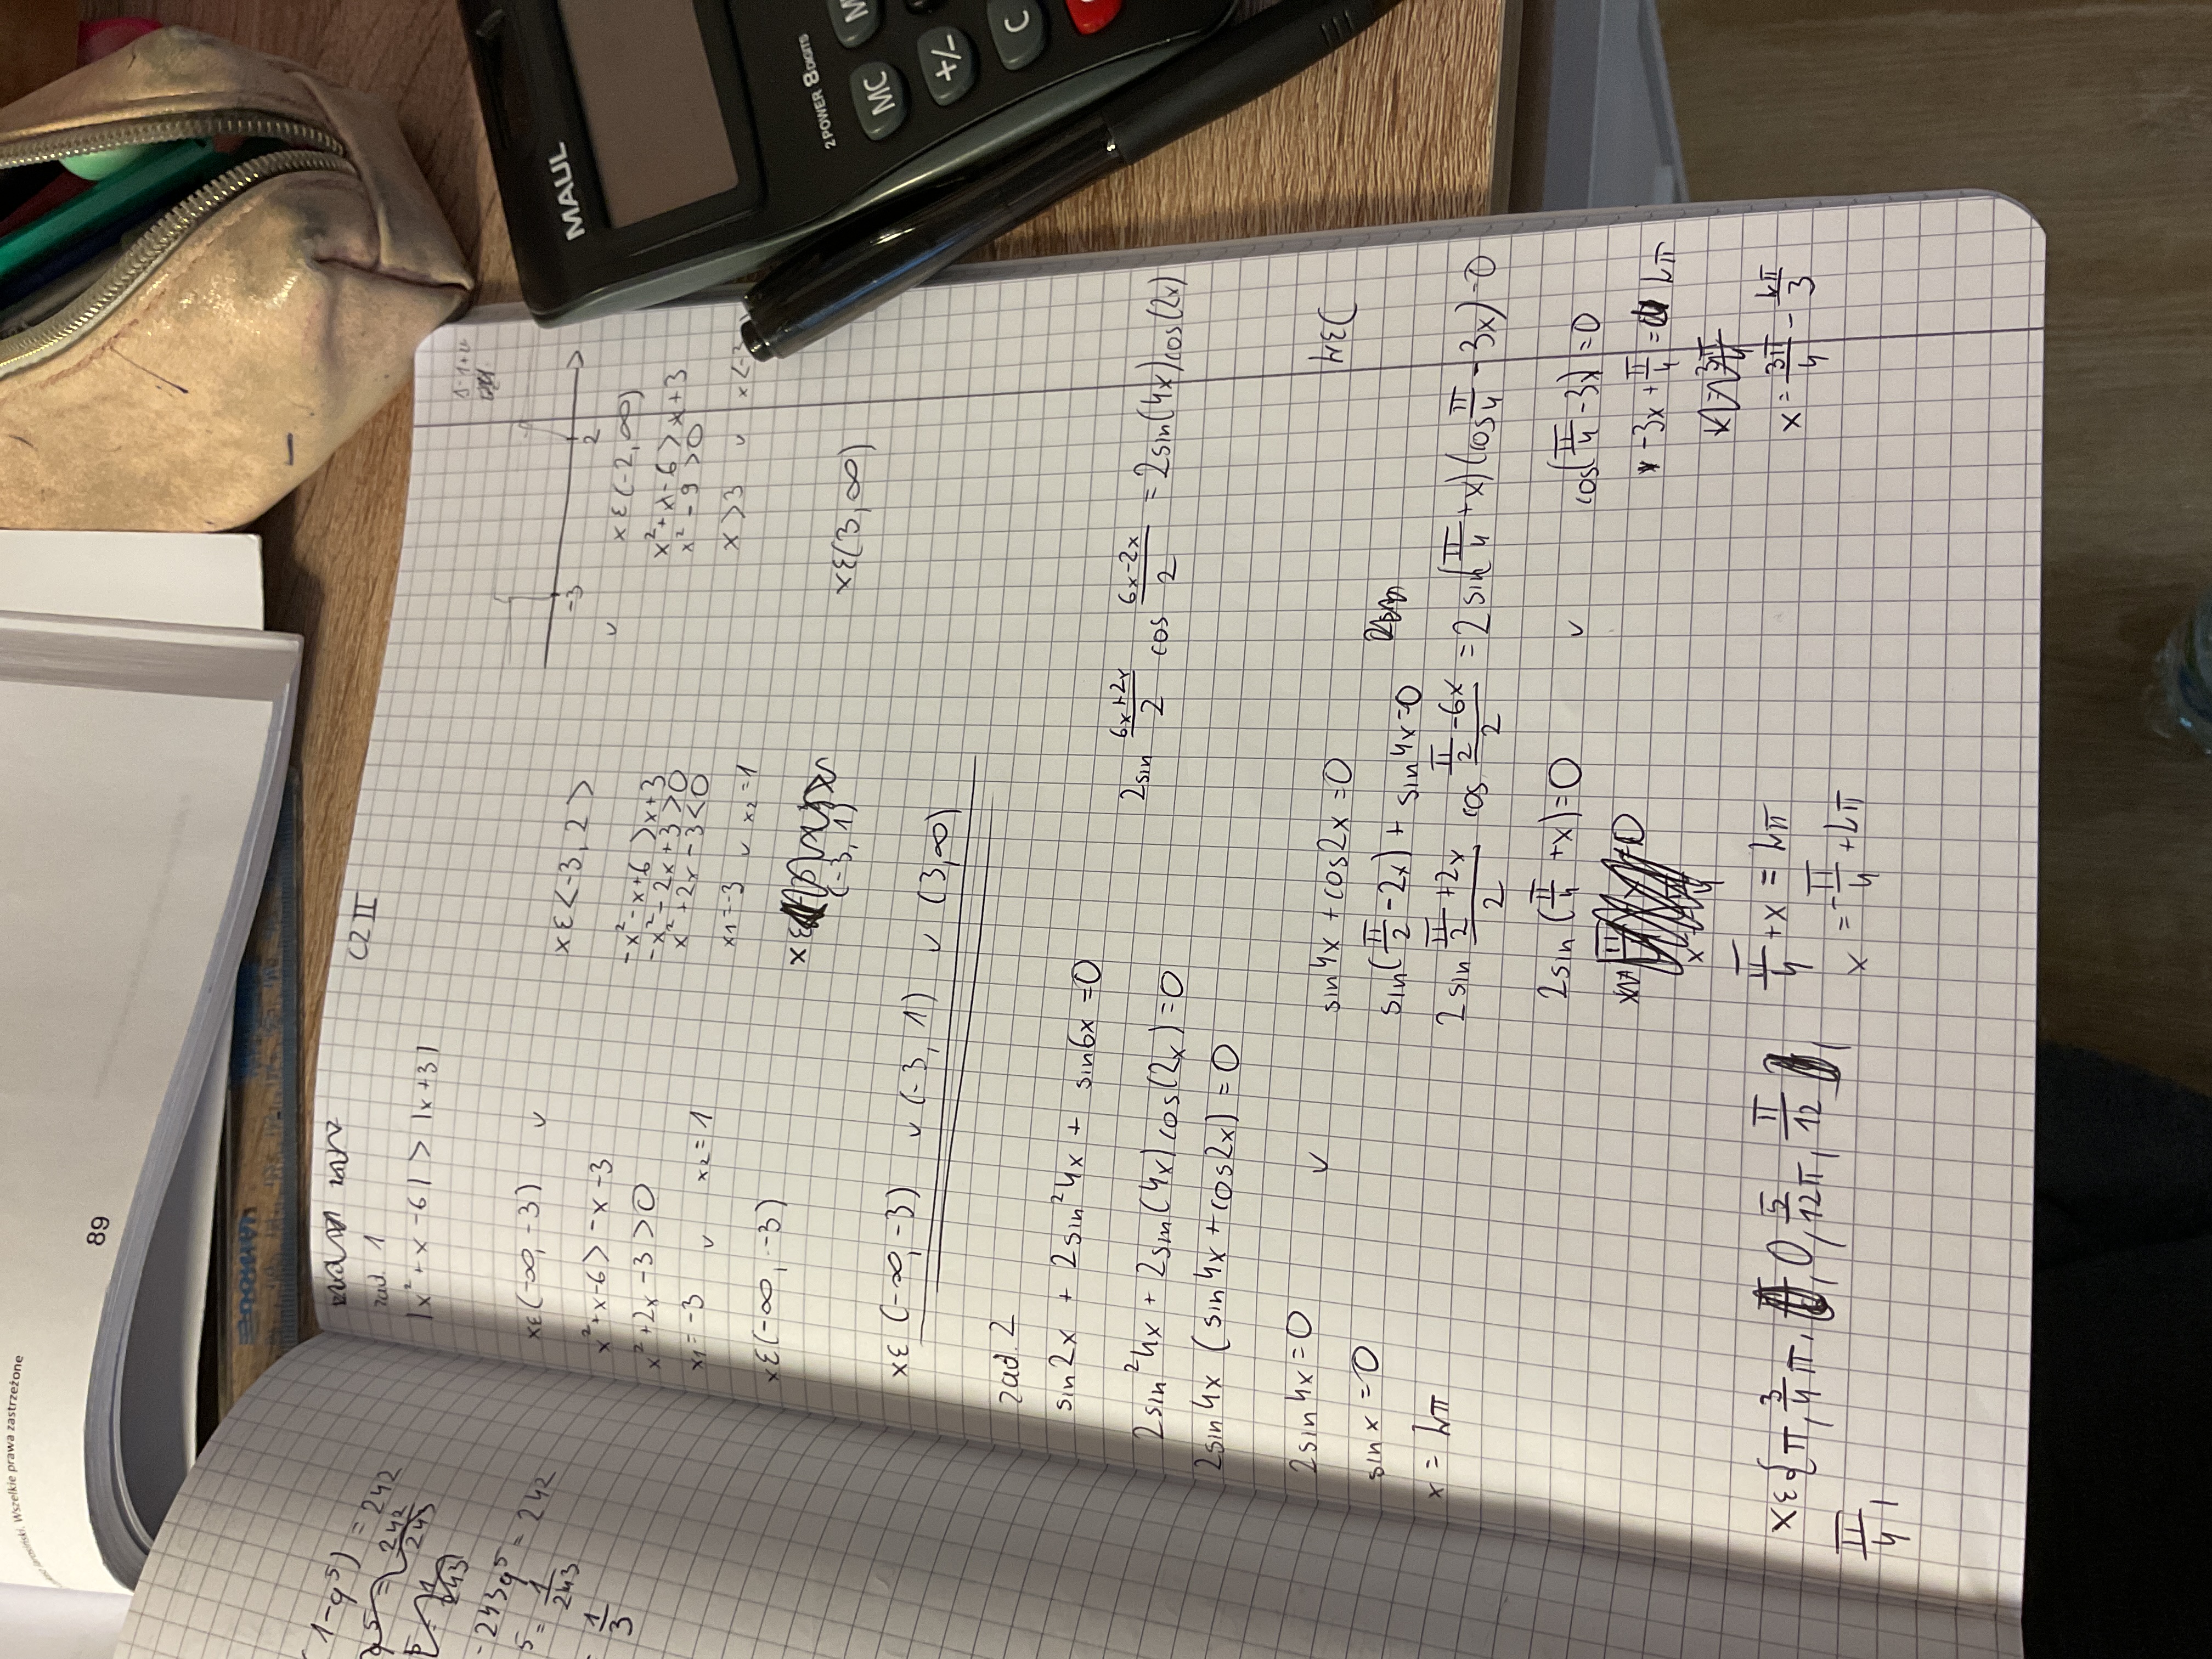 89
Wszelkie prawa zastrzeżone
MAUL
2 POWER 8 DIGITS
MC
+/-
C
1-q⁵) = 242
-243q⁵ = 242
⁵ = 1/243
= 1/3
CZ II
zad. 1
|x² + x - 6| > |x + 3|
-3 2
x ε (-∞, -3) v x ε <-3, 2> v x ε (-2, ∞)
x² + x - 6 > -x - 3
x² + 2x - 3 > 0
x1 = -3 v x2 = 1
x ε (-∞, -3)
-x² - x + 6 > x + 3
-x² - 2x + 3 > 0
x² + 2x - 3 < 0
x1 = -3 v x2 = 1
x ε (-3, 1)
x² + x - 6 > x + 3
x² - 9 > 0
x > 3 v x < -3
x ε (3, ∞)
x ε (-∞, -3) v (-3, 1) v (3, ∞)
zad. 2
sin2x + 2sin²4x + sin6x = 0
2sin (6x+2x)/2 cos (6x-2x)/2 = 2sin(4x)cos(2x)
2sin²4x + 2sin(4x)cos(2x) = 0
2sin4x (sin4x + cos2x) = 0
2sin4x = 0 v sin4x + cos2x = 0
sinx = 0
x = kπ
sin(π/2 - 2x) + sin4x = 0
2sin (π/2 + 2x)/2 cos (π/2 - 6x)/2 = 2sin(π/4 + x)(cos π/4 - 3x) = 0
2sin(π/4 + x) = 0 v cos(π/4 - 3x) = 0
-3x + π/4 = kπ
π/4 + x = kπ
x = -π/4 + kπ
x = 3π/4 - kπ/3
x ε { π, 3/4 π, 0, 5/12 π, π/12,
π/4,